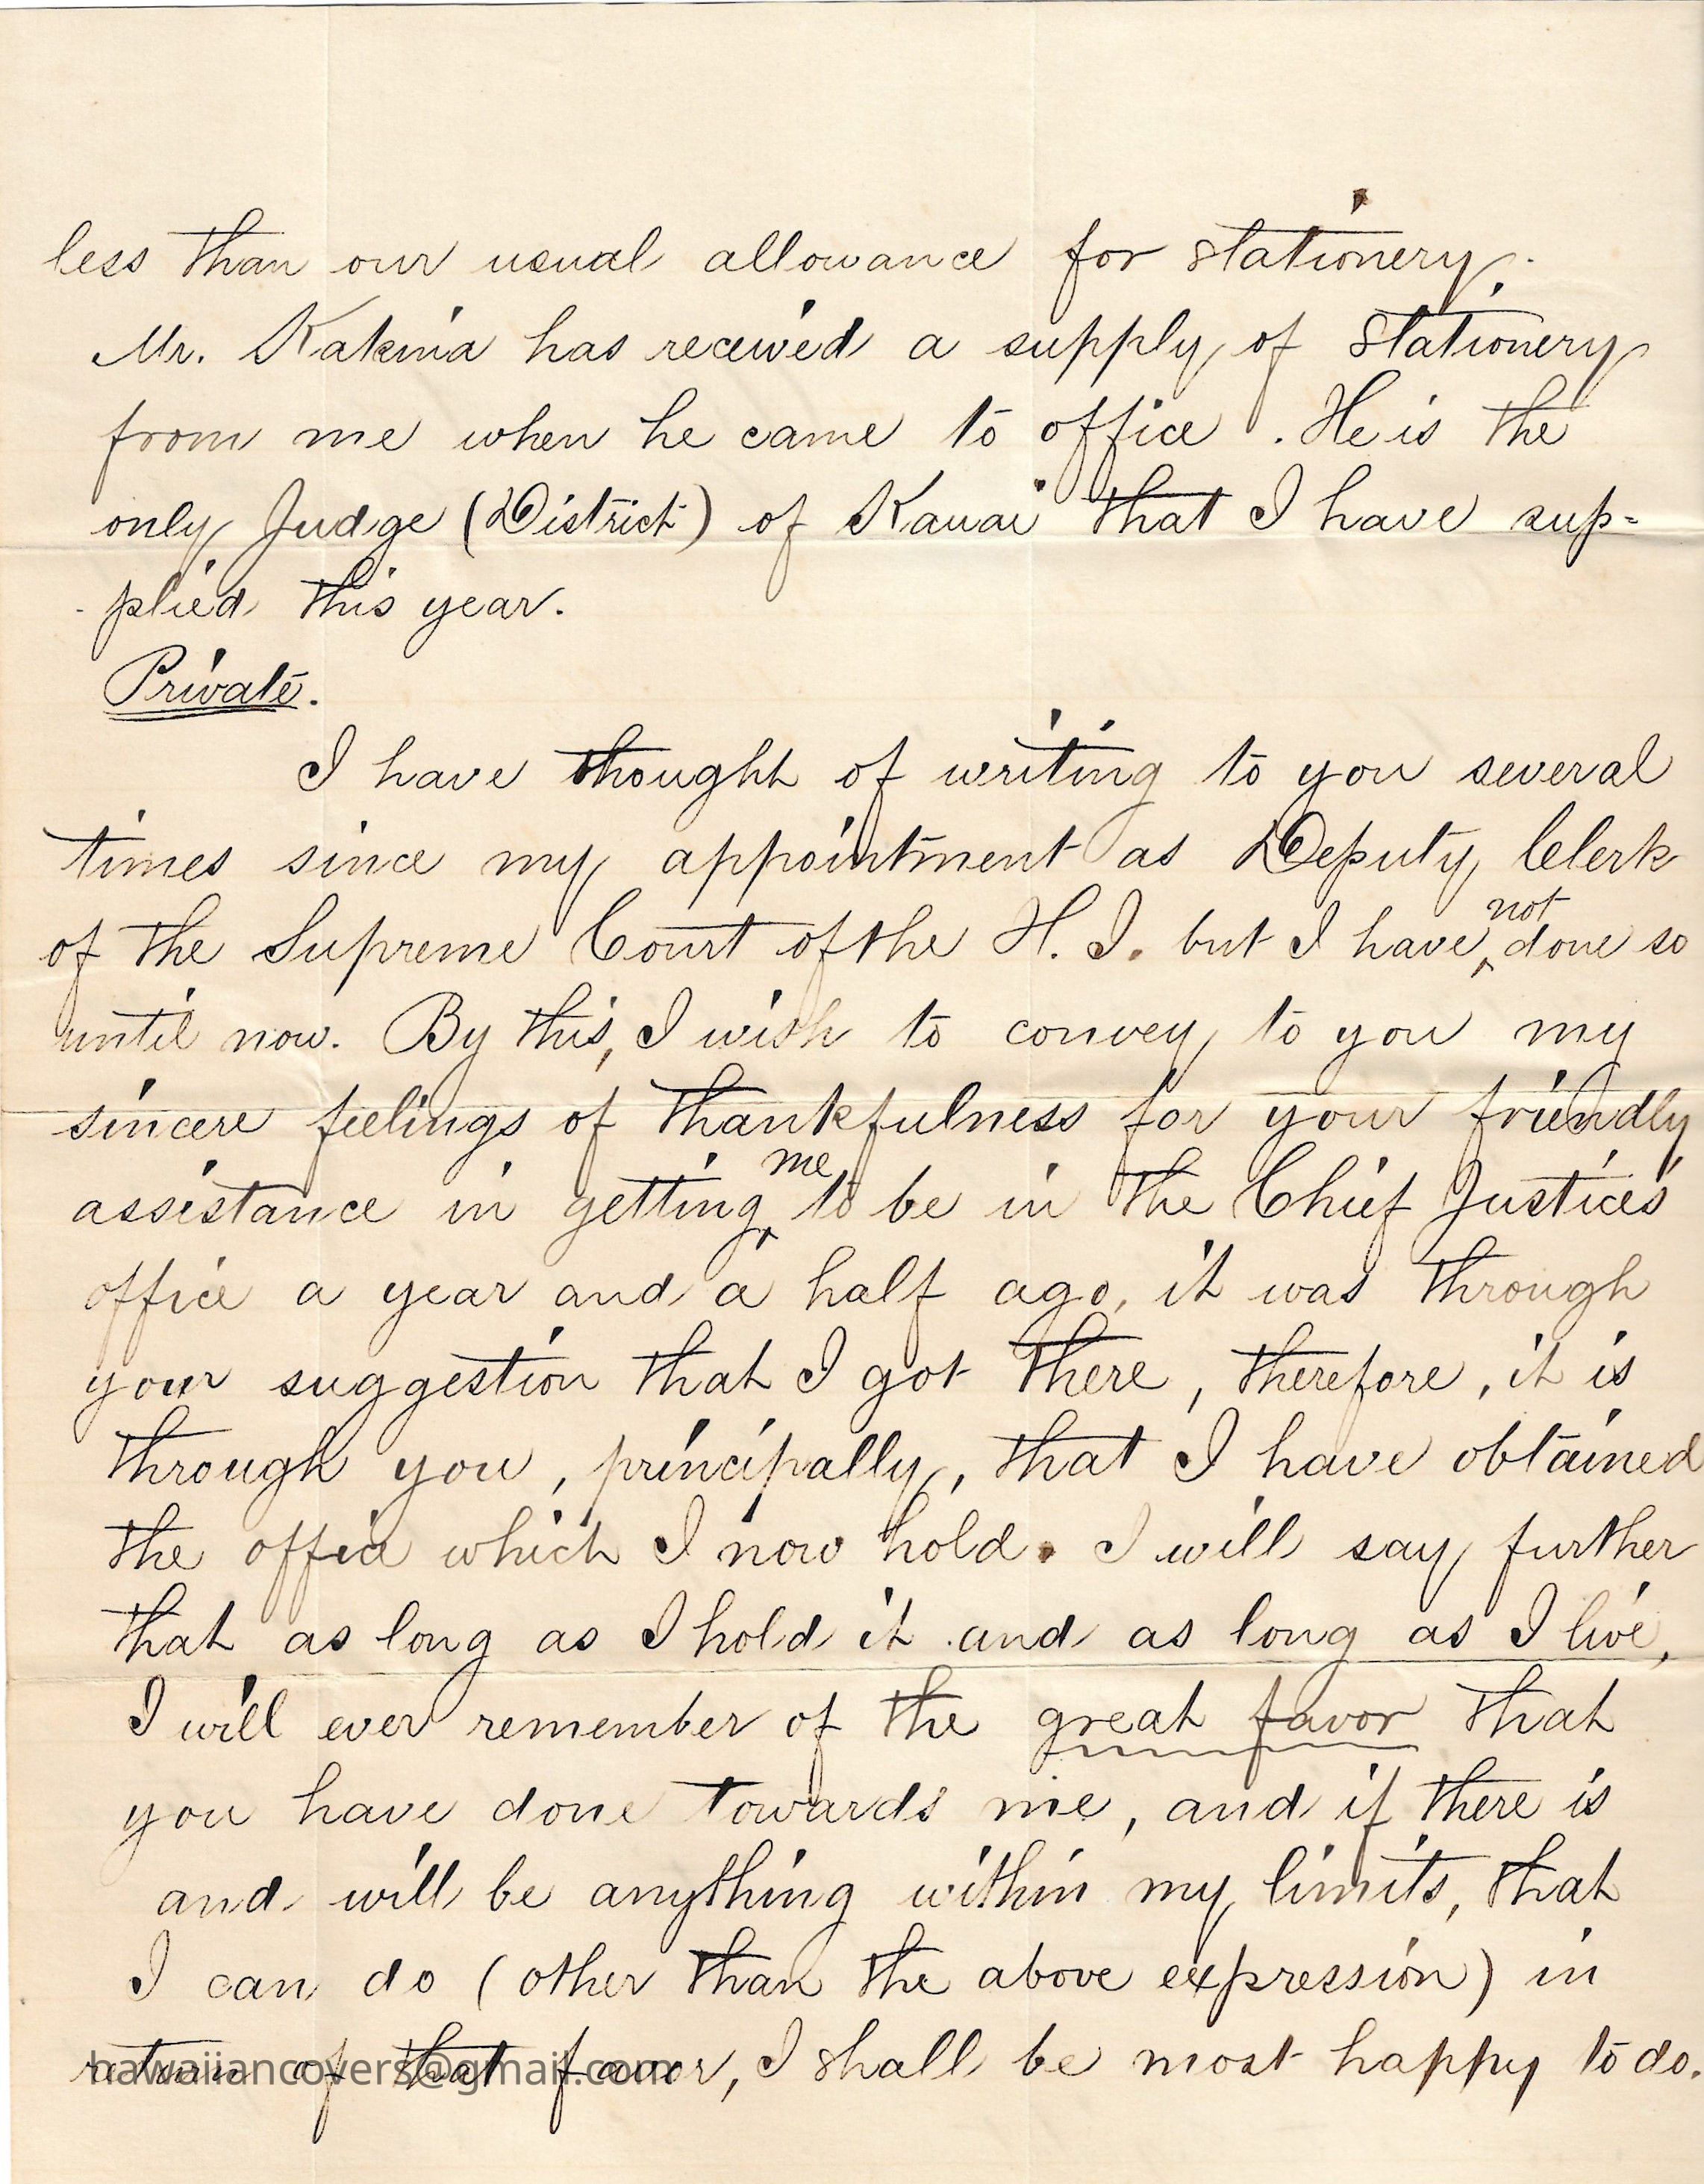 less than our usual allowance for stationery.
Mr. Kakina has received a supply of stationery
from me when he came to office. He is the
only Judge (District) of Kauai that I have sup=
plied this year.
Private.
I have thought of writing to you several
times since my appointment as Deputy Clerk
of the Supreme Court of the H. I. but I have not done so
until now. By this, I wish to convey to you my
sincere feelings of thankfulness for your friendly
assistance in getting me to be in the Chief Justices
office a year and a half ago, it was through
your suggestion that I got there, therefore, it is
through you, principally, that I have obtained
the office which I now hold. I will say further
that as long as I hold it and as long as I live,
I will ever remember of the great favor that
you have done towards me, and if there is
and will be anything within my limits, that
I can do (other than the above expression) in
return of that favor, I shall be most happy to do.
hawaiiancovers@gmail.com